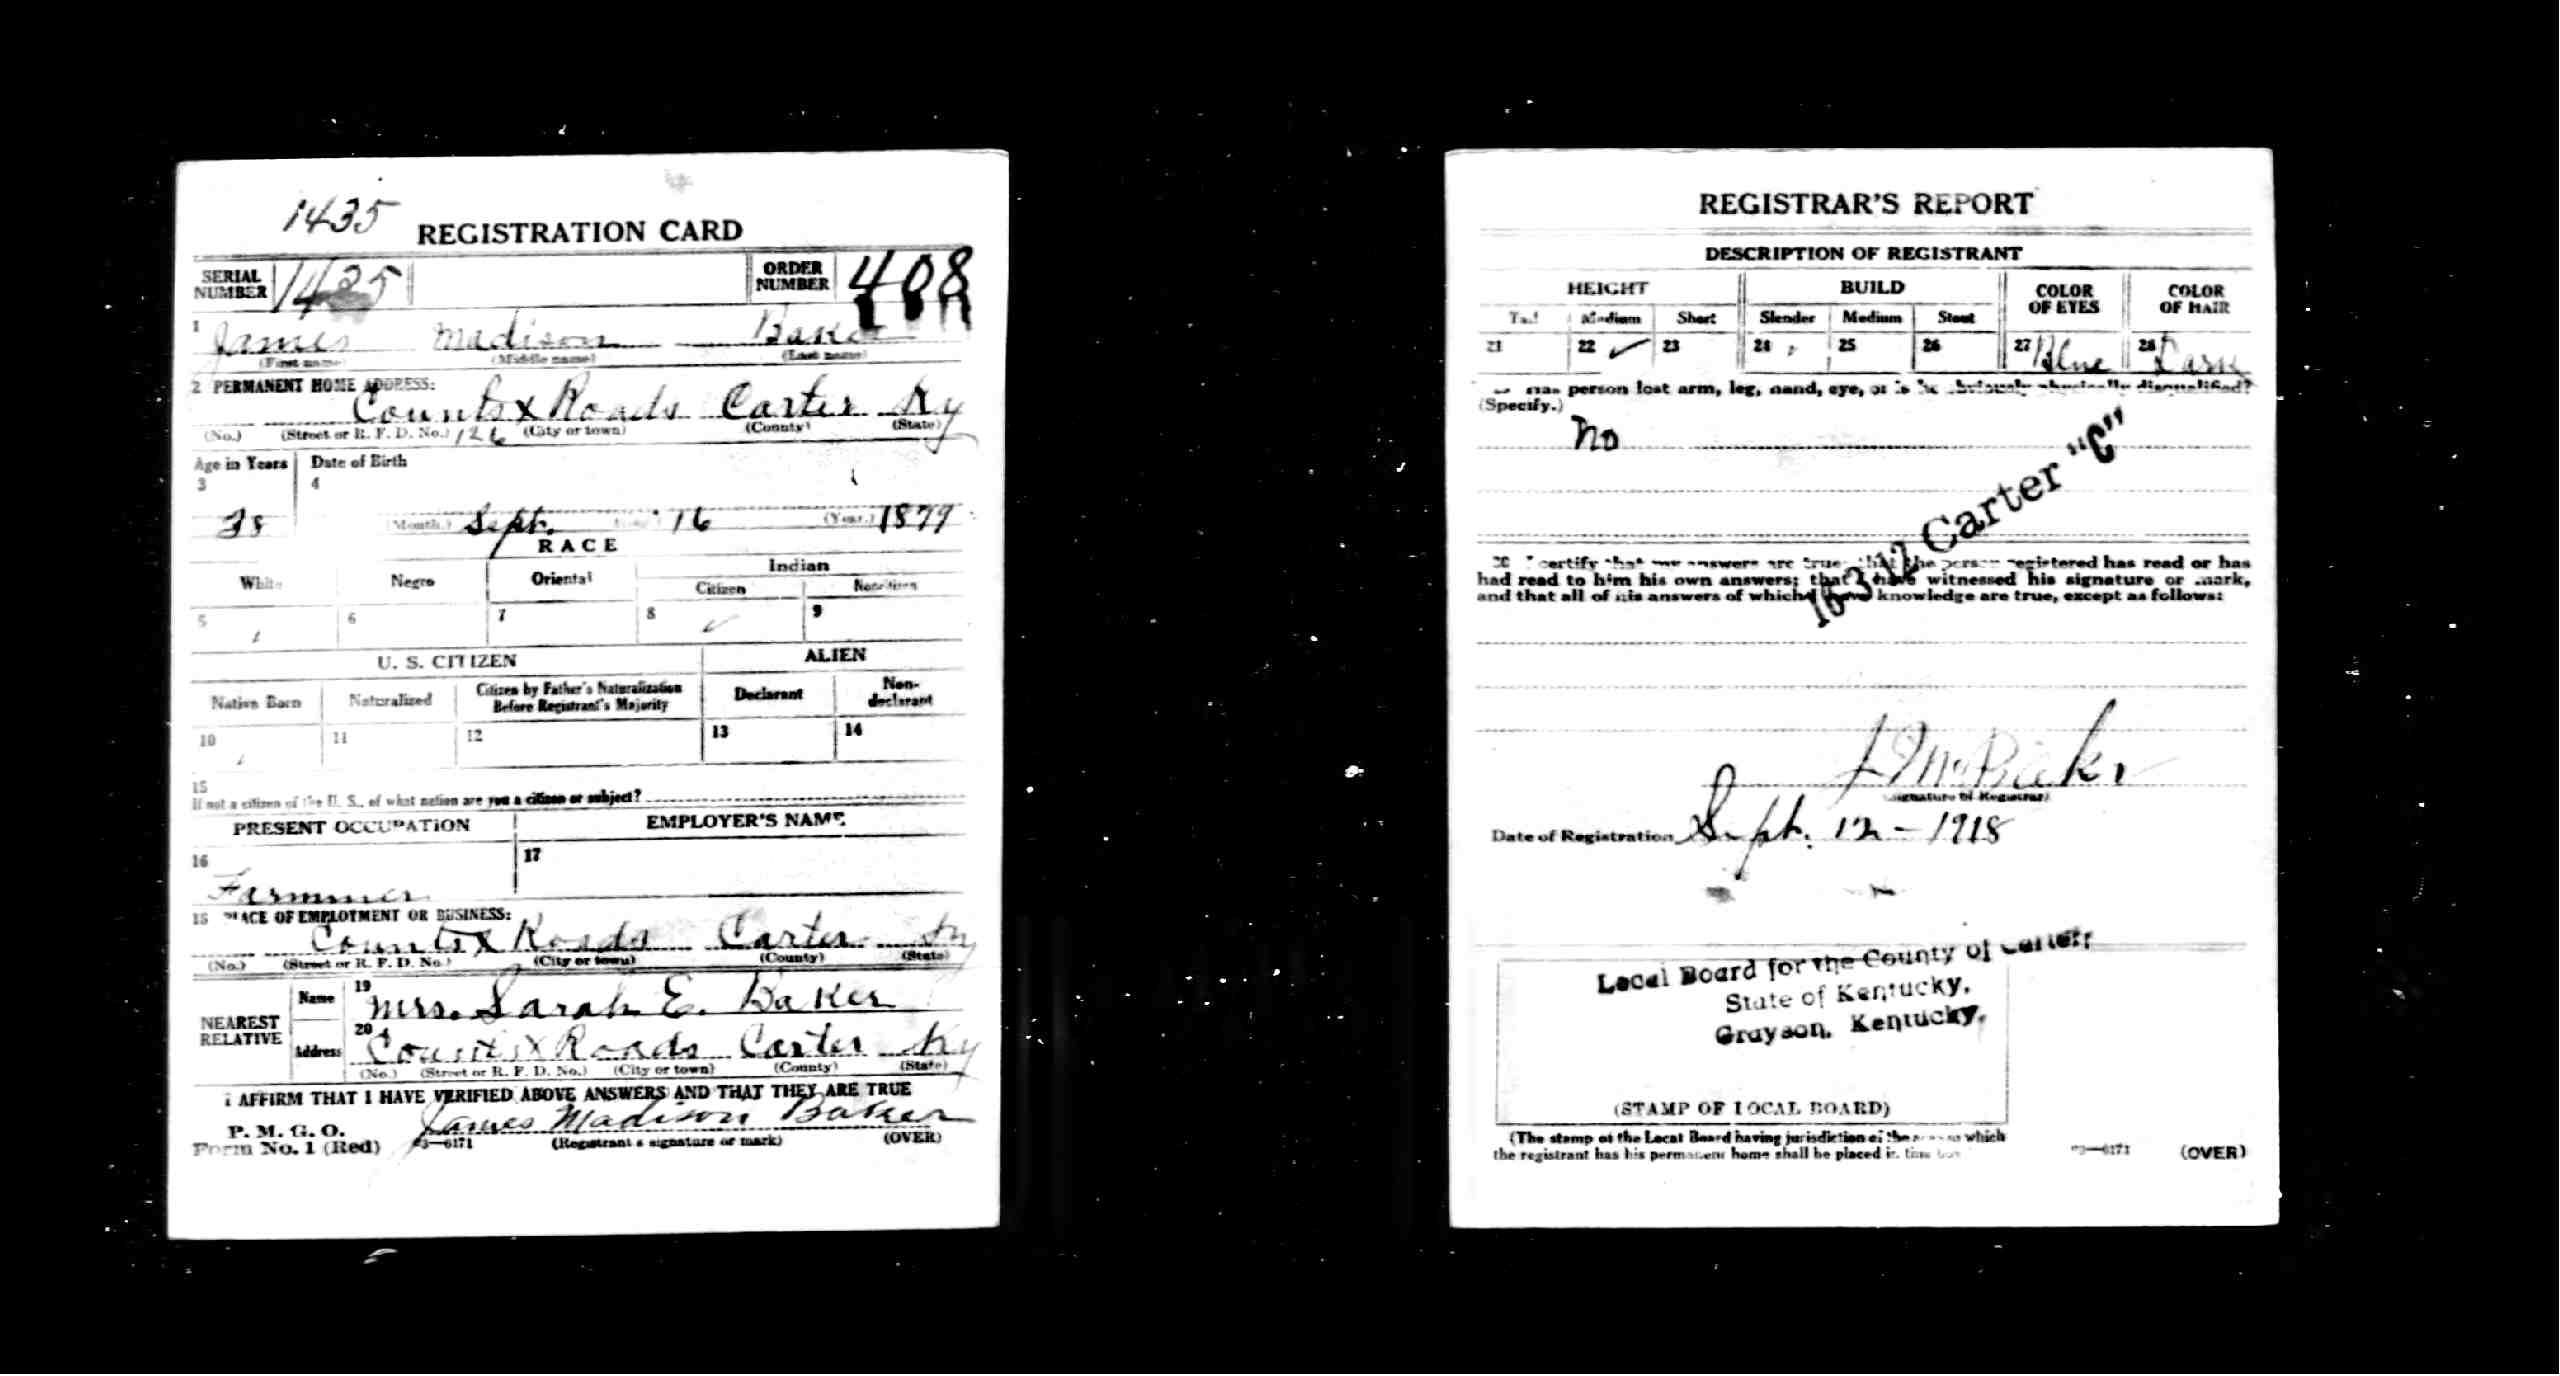 1435
REGISTRATION CARD
SERIAL NUMBER 1435 ORDER NUMBER 408
1 James Madison Baker
(First name) (Middle name) (Last name)
2 PERMANENT HOME ADDRESS:
Counts X Roads Carter Ky
(No.) (Street or R. F. D. No.) 126 (City or town) (County) (State)
Age in Years Date of Birth
3 4
38 (Month.) Sept. 16 (Year.) 1879
RACE
White Negro Oriental Indian
Citizen Noncitizen
5 6 7 8 ✓ 9
U. S. CITIZEN ALIEN
Native Born Naturalized Citizen by Father's Naturalization Before Registrant's Majority Declarant Non-declarant
10 11 12 13 14
15
If not a citizen of the U. S., of what nation are you a citizen or subject?
PRESENT OCCUPATION EMPLOYER'S NAME
16 17
Farmmer
18 PLACE OF EMPLOYMENT OR BUSINESS:
Counts X Roads Carter Ky
(No.) (Street or R. F. D. No.) (City or town) (County) (State)
NEAREST RELATIVE Name 19 Mrs. Sarah E. Baker
Address 20 Counts X Roads Carter Ky
(No.) (Street or R. F. D. No.) (City or town) (County) (State)
I AFFIRM THAT I HAVE VERIFIED ABOVE ANSWERS AND THAT THEY ARE TRUE
James Madison Baker
P. M. G. O.
Form No. 1 (Red) 03—6171 (Registrant's signature or mark) (OVER)
REGISTRAR'S REPORT
DESCRIPTION OF REGISTRANT
HEIGHT BUILD COLOR OF EYES COLOR OF HAIR
Tall Medium Short Slender Medium Stout
21 22 ✓ 23 24 25 26 27 Blue 28 Dark
Has person lost arm, leg, hand, eye, or is he obviously physically disqualified?
(Specify.)
No
16-3-12 Carter "C"
30 I certify that my answers are true; that the person registered has read or has
had read to him his own answers; that I have witnessed his signature or mark,
and that all of his answers of which I have knowledge are true, except as follows:
Baker
(Signature of Registrar)
Date of Registration Sept. 12 - 1918
Local Board for the County of Carter,
State of Kentucky,
Grayson, Kentucky.
(STAMP OF LOCAL BOARD)
(The stamp of the Local Board having jurisdiction of the area in which
the registrant has his permanent home shall be placed in this box.)
03—6171 (OVER)